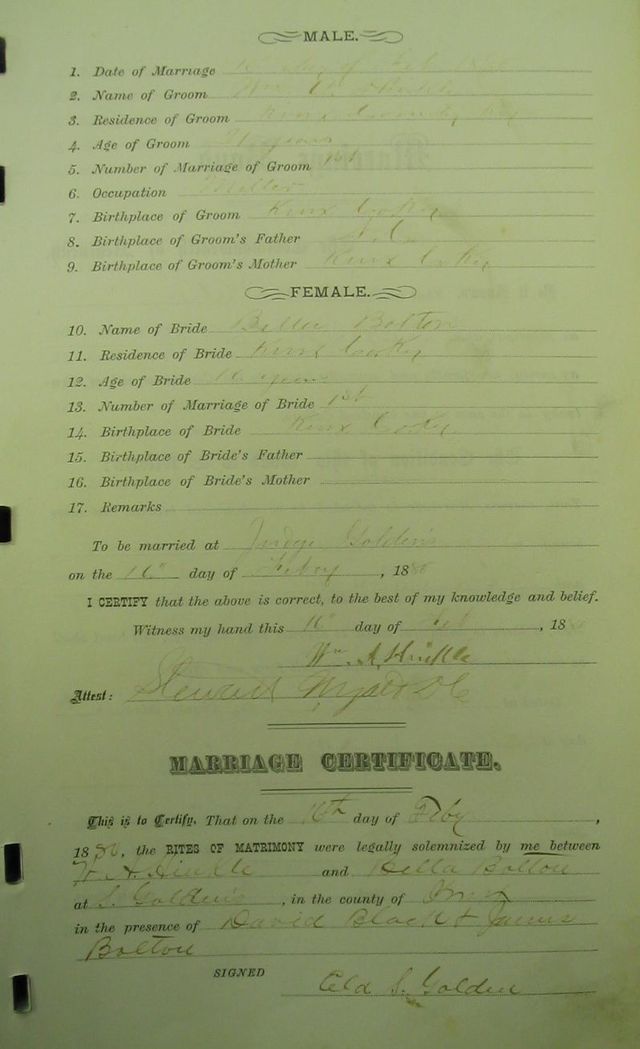 MALE.
1. Date of Marriage
2. Name of Groom Wm A Hinkle
3. Residence of Groom Knox County Ky
4. Age of Groom years
5. Number of Marriage of Groom 1st
6. Occupation Miller
7. Birthplace of Groom Knox Co Ky
8. Birthplace of Groom's Father
9. Birthplace of Groom's Mother Knox Co Ky
FEMALE.
10. Name of Bride Bella Bolton
11. Residence of Bride Knox Co Ky
12. Age of Bride years
13. Number of Marriage of Bride 1st
14. Birthplace of Bride Knox Co Ky
15. Birthplace of Bride's Father
16. Birthplace of Bride's Mother
17. Remarks
To be married at Judge Golden's
on the 16" day of Feby, 18
I CERTIFY that the above is correct, to the best of my knowledge and belief.
Witness my hand this 16" day of Feb, 18
Wm. A. Hinkle
Attest: Stewart DC
MARRIAGE CERTIFICATE.
This is to Certify, That on the 16th day of Feby,
1886, the RITES OF MATRIMONY were legally solemnized by me between
W. A. Hinkle and Bella Bolton
at S. Golden's, in the county of Knox
in the presence of David Black & James
Bolton
SIGNED
S. Golden